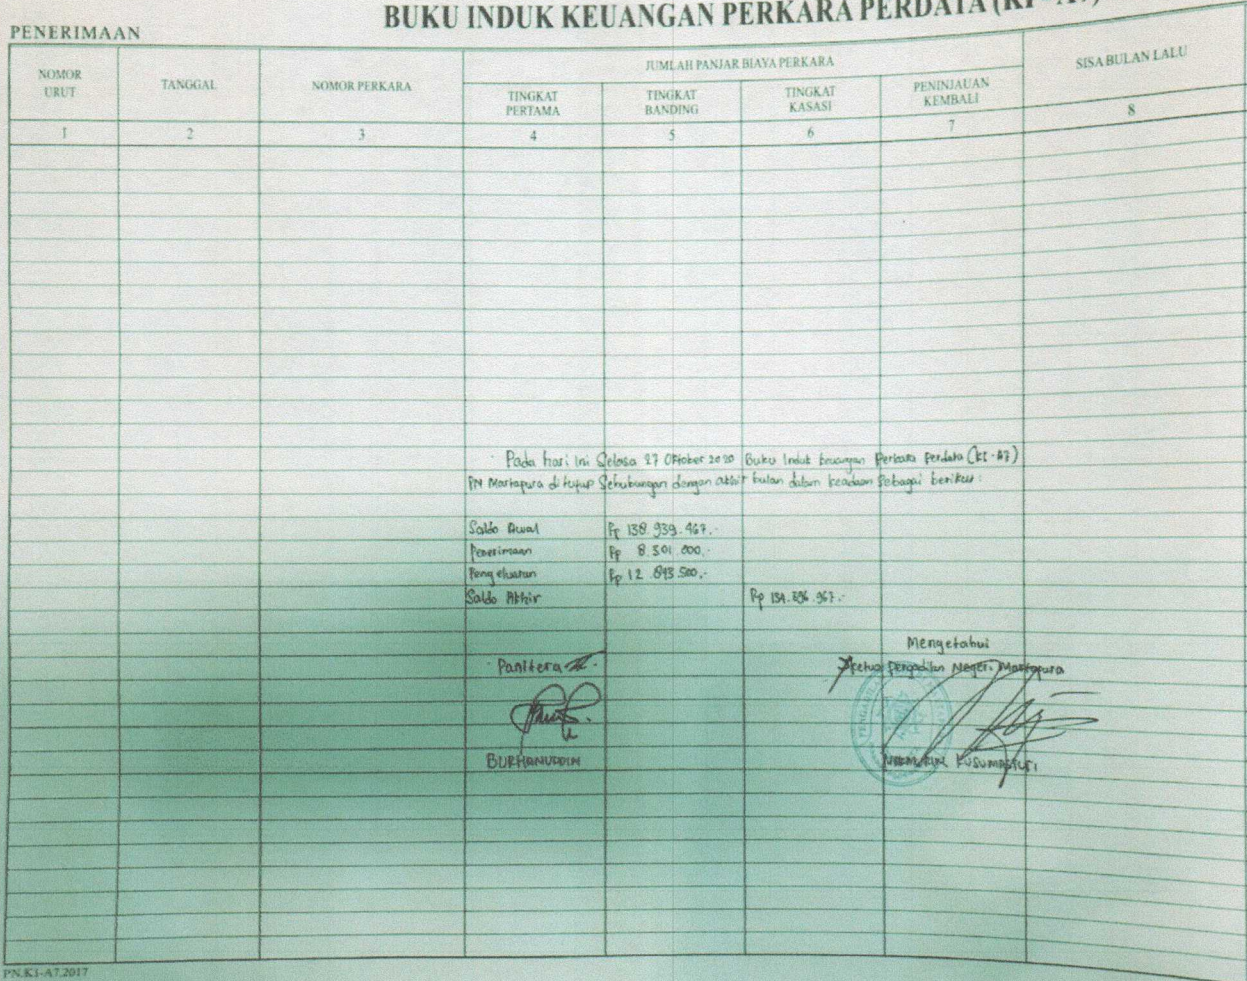 BUKU INDUK KEUANGAN PERKARA PERDATA (KI - A7)
PENERIMAAN
NOMOR URUT
TANGGAL
NOMOR PERKARA
JUMLAH PANJAR BIAYA PERKARA
TINGKAT PERTAMA
TINGKAT BANDING
TINGKAT KASASI
PENINJAUAN KEMBALI
SISA BULAN LALU
1 2 3 4 5 6 7 8
Pada hari ini Selasa 27 Oktober 2020 Buku Induk keuangan Perkara Perdata (KI-A7)
PN Martapura di tutup Sehubungan dengan akhir bulan dalam keadaan Sebagai berikut :
Saldo Awal Rp 138.939.467.-
Penerimaan Rp 8.301.000.-
Pengeluaran Rp 12.893.500,-
Saldo Akhir Rp 134.896.967.-
Mengetahui
Panitera
Ketua Pengadilan Negeri Martapura
BURHANUDDIN
KUSUMASTUTI
PN.K1-A7.2017